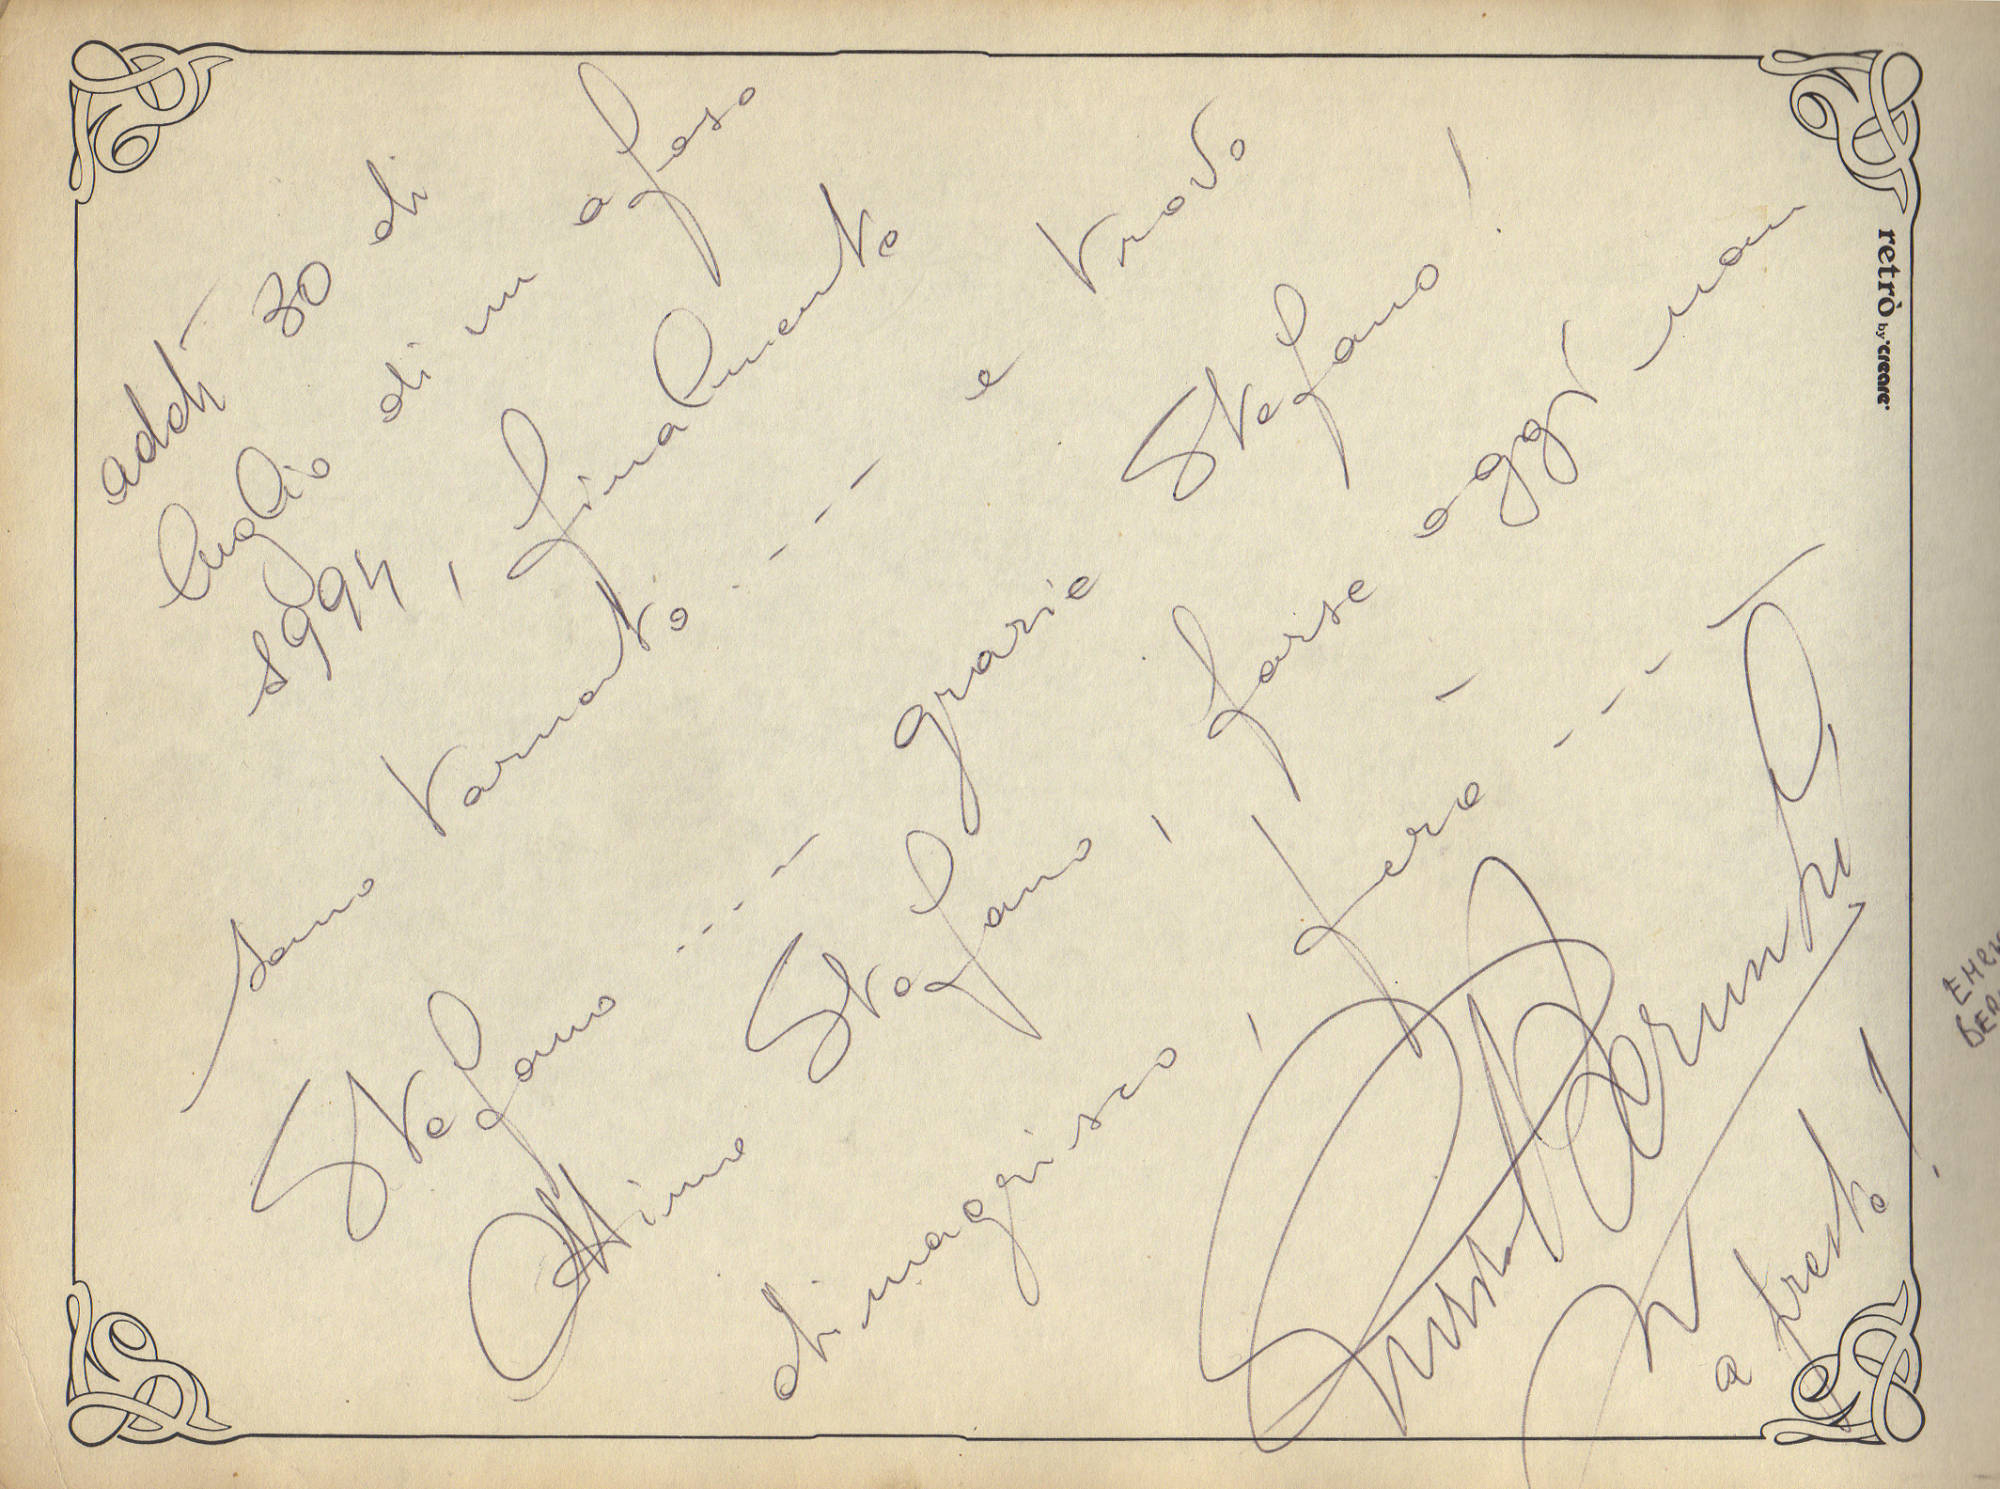 addì 30 di
luglio di un afoso
1994, finalmente
sono tornato ... --- e trovo
Stefano ... --- grazie Stefano!
Ottimo Stefano, forse oggi non
dimagrisco, però ---
a presto!
retrò by 'creare'